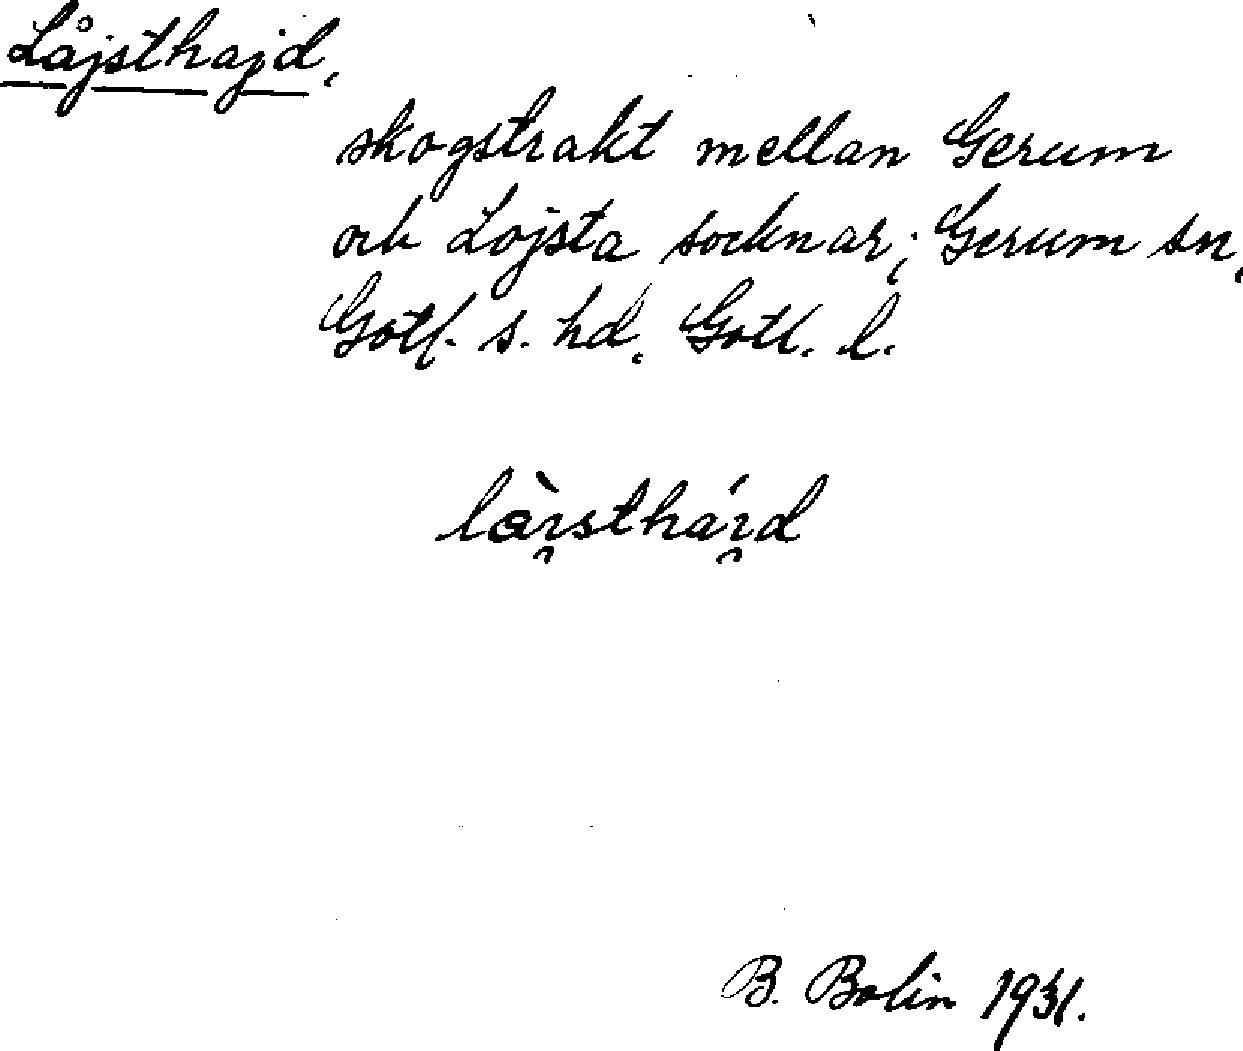 Låjsthajd,
skogstrakt mellan Gerum
och Lojsta socknar; Gerum sn,
Gotl. s. hd, Gotl. l.
làı̯sthái̯d
B. Bolin 1931.